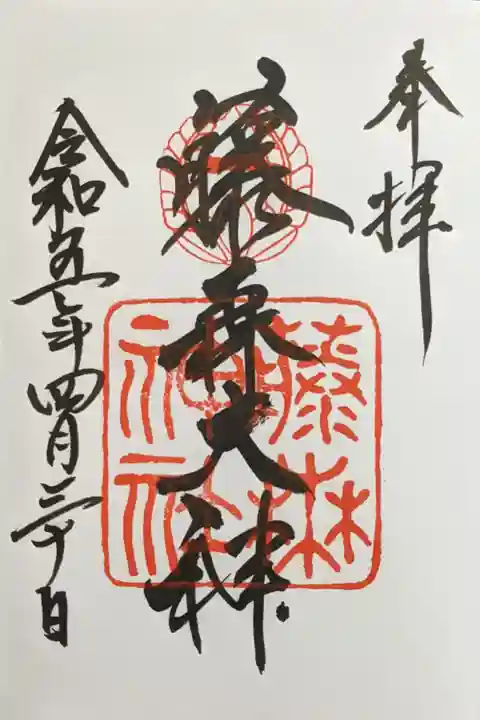 奉拝
藤森大神
藤森神社
令和五年四月三十日